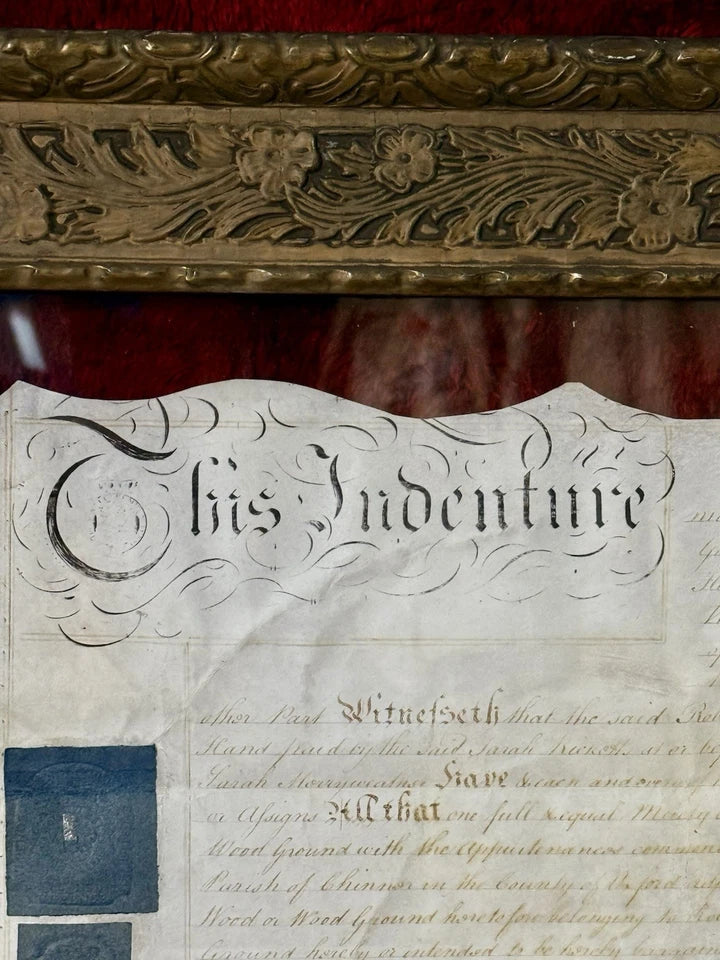 This Indenture
other Part Witnesseth that the said
Hand paid by the said Sarah at or
Sarah Merryweather have & each and every of
or Assigns All that one full & equal Moiety
Wood Ground with the Appurtenances
Parish of Chinnor in the County of Oxford
Wood or Wood Ground heretofore belonging to
Ground hereby or intended to be hereby